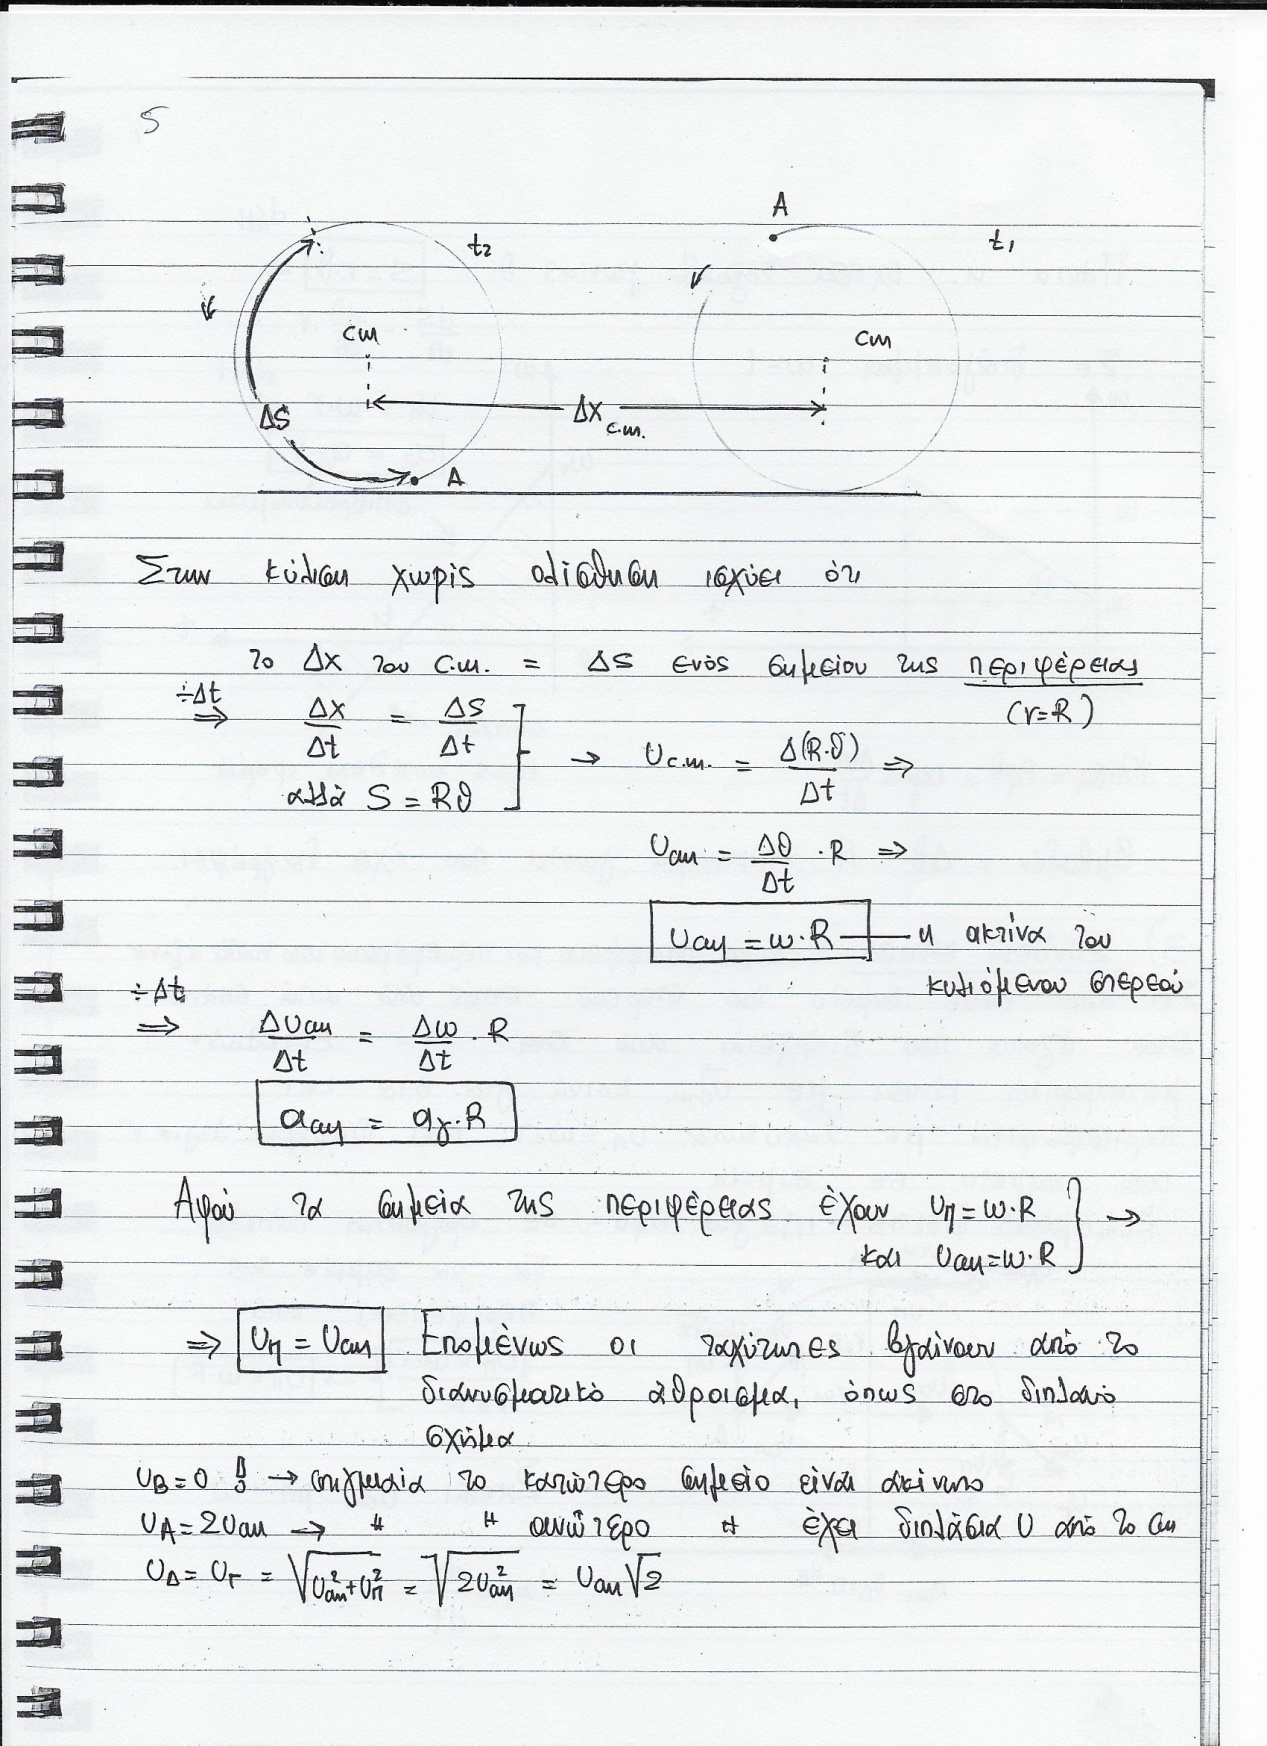 5
A
t₂
t₁
cm
cm
ΔS
Δx c.m.
A
Στην κύλιση χωρίς ολίσθηση ισχύει ότι
το Δx του c.m. = ΔS ενός σημείου της περιφέρειας
÷Δt ⇒ Δx/Δt = ΔS/Δt (r=R)
αλλά S = Rθ → υc.m. = Δ(R·θ)/Δt ⇒
υcm = Δθ/Δt · R ⇒
υcm = ω·R — η ακτίνα του
κυλιόμενου στερεού
÷Δt ⇒ Δυcm/Δt = Δω/Δt · R
αcm = αγ·R
Αφού τα σημεία της περιφέρειας έχουν υη = ω·R
και υcm = ω·R } →
⇒ υη = υcm Επομένως οι ταχύτητες βγαίνουν από το
διανυσματικό άθροισμα, όπως στο διπλανό
σχήμα
υB = 0 → στιγμιαία το κατώτερο σημείο είναι ακίνητο
υA = 2υcm → " " ανώτερο " έχει διπλάσια υ από το cm
υΔ = υΓ = √(υcm² + υη²) = √(2υcm²) = υcm√2